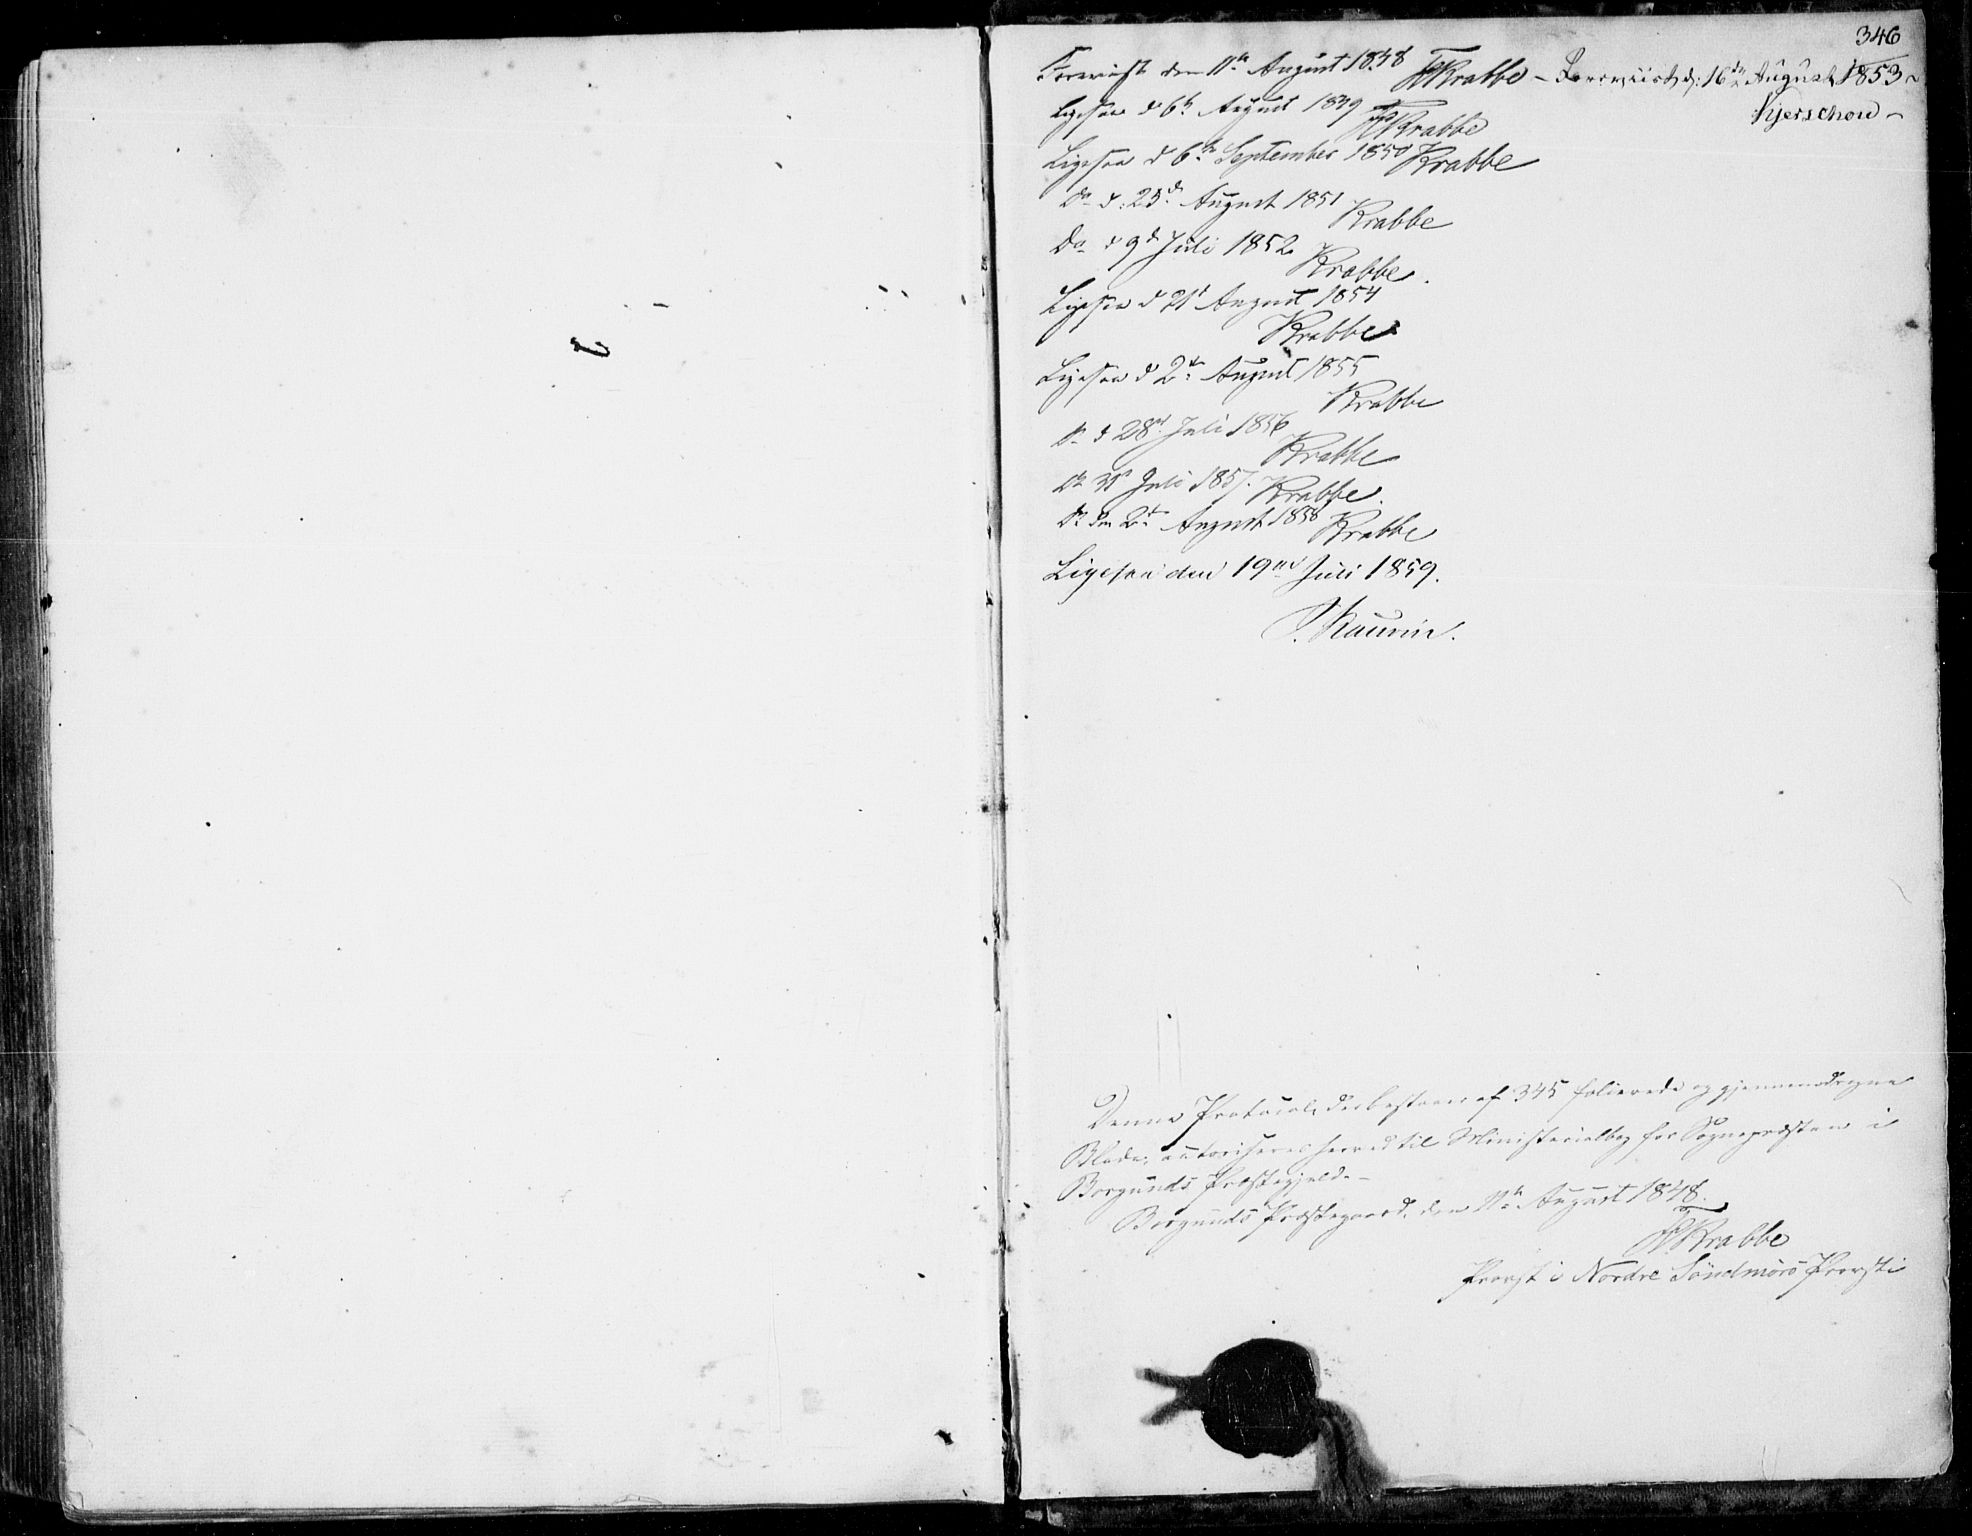 346
Foreviist den 11te August 1848 FKrabbe – Foreviist d: 16de August 1853 –
Kjerschow –
Ligesaa d 6te August 1849 FKrabbe
Ligesaa d 6te September 1850 Krabbe
Do d: 25de August 1851 Krabbe
Do d 9d Juli 1852 Krabbe.
Ligesaa d 21d August 1854
Krabbe
Ligesaa d 2de August 1855
Krabbe
Do d 28de Juli 1856
Krabbe
Do Juli 1857. Krabbe.
Do den 2de August 1858 Krabbe
Ligesaa den 19de Juli 1859.
Kaurin.
Denne Protocol, der bestaaer af 345 folierede og gjennemdragne
Blade, autoriseres herved til Ministerialbog for Sognepræsten i
Borgunds Præstegjeld. –
Borgunds Præstegaard, den 11te August 1848.
FKrabbe
Provst i Nordre Söndmörs Provsti